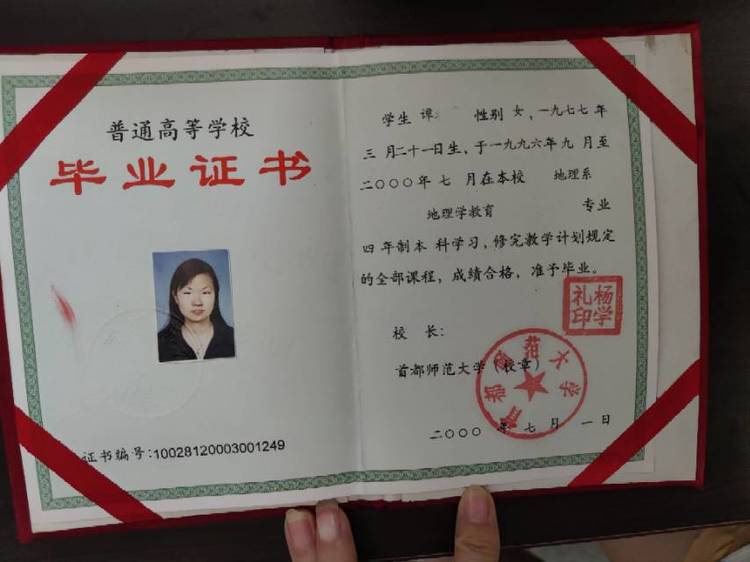 普通高等学校
毕业证书
证书编号:100281200003001249
学生 谭 性别 女,一九七七年
三 月二十一日生,于一九九六年 九 月至
二〇〇〇年 七 月在本校 地理系
地理学教育 专业
四 年制本 科学习,修完教学计划规定
的全部课程,成绩合格,准予毕业。
杨学礼印
校 长:
首都师范大学(校章)
首都师范大学
二〇〇〇 年 七 月 一 日